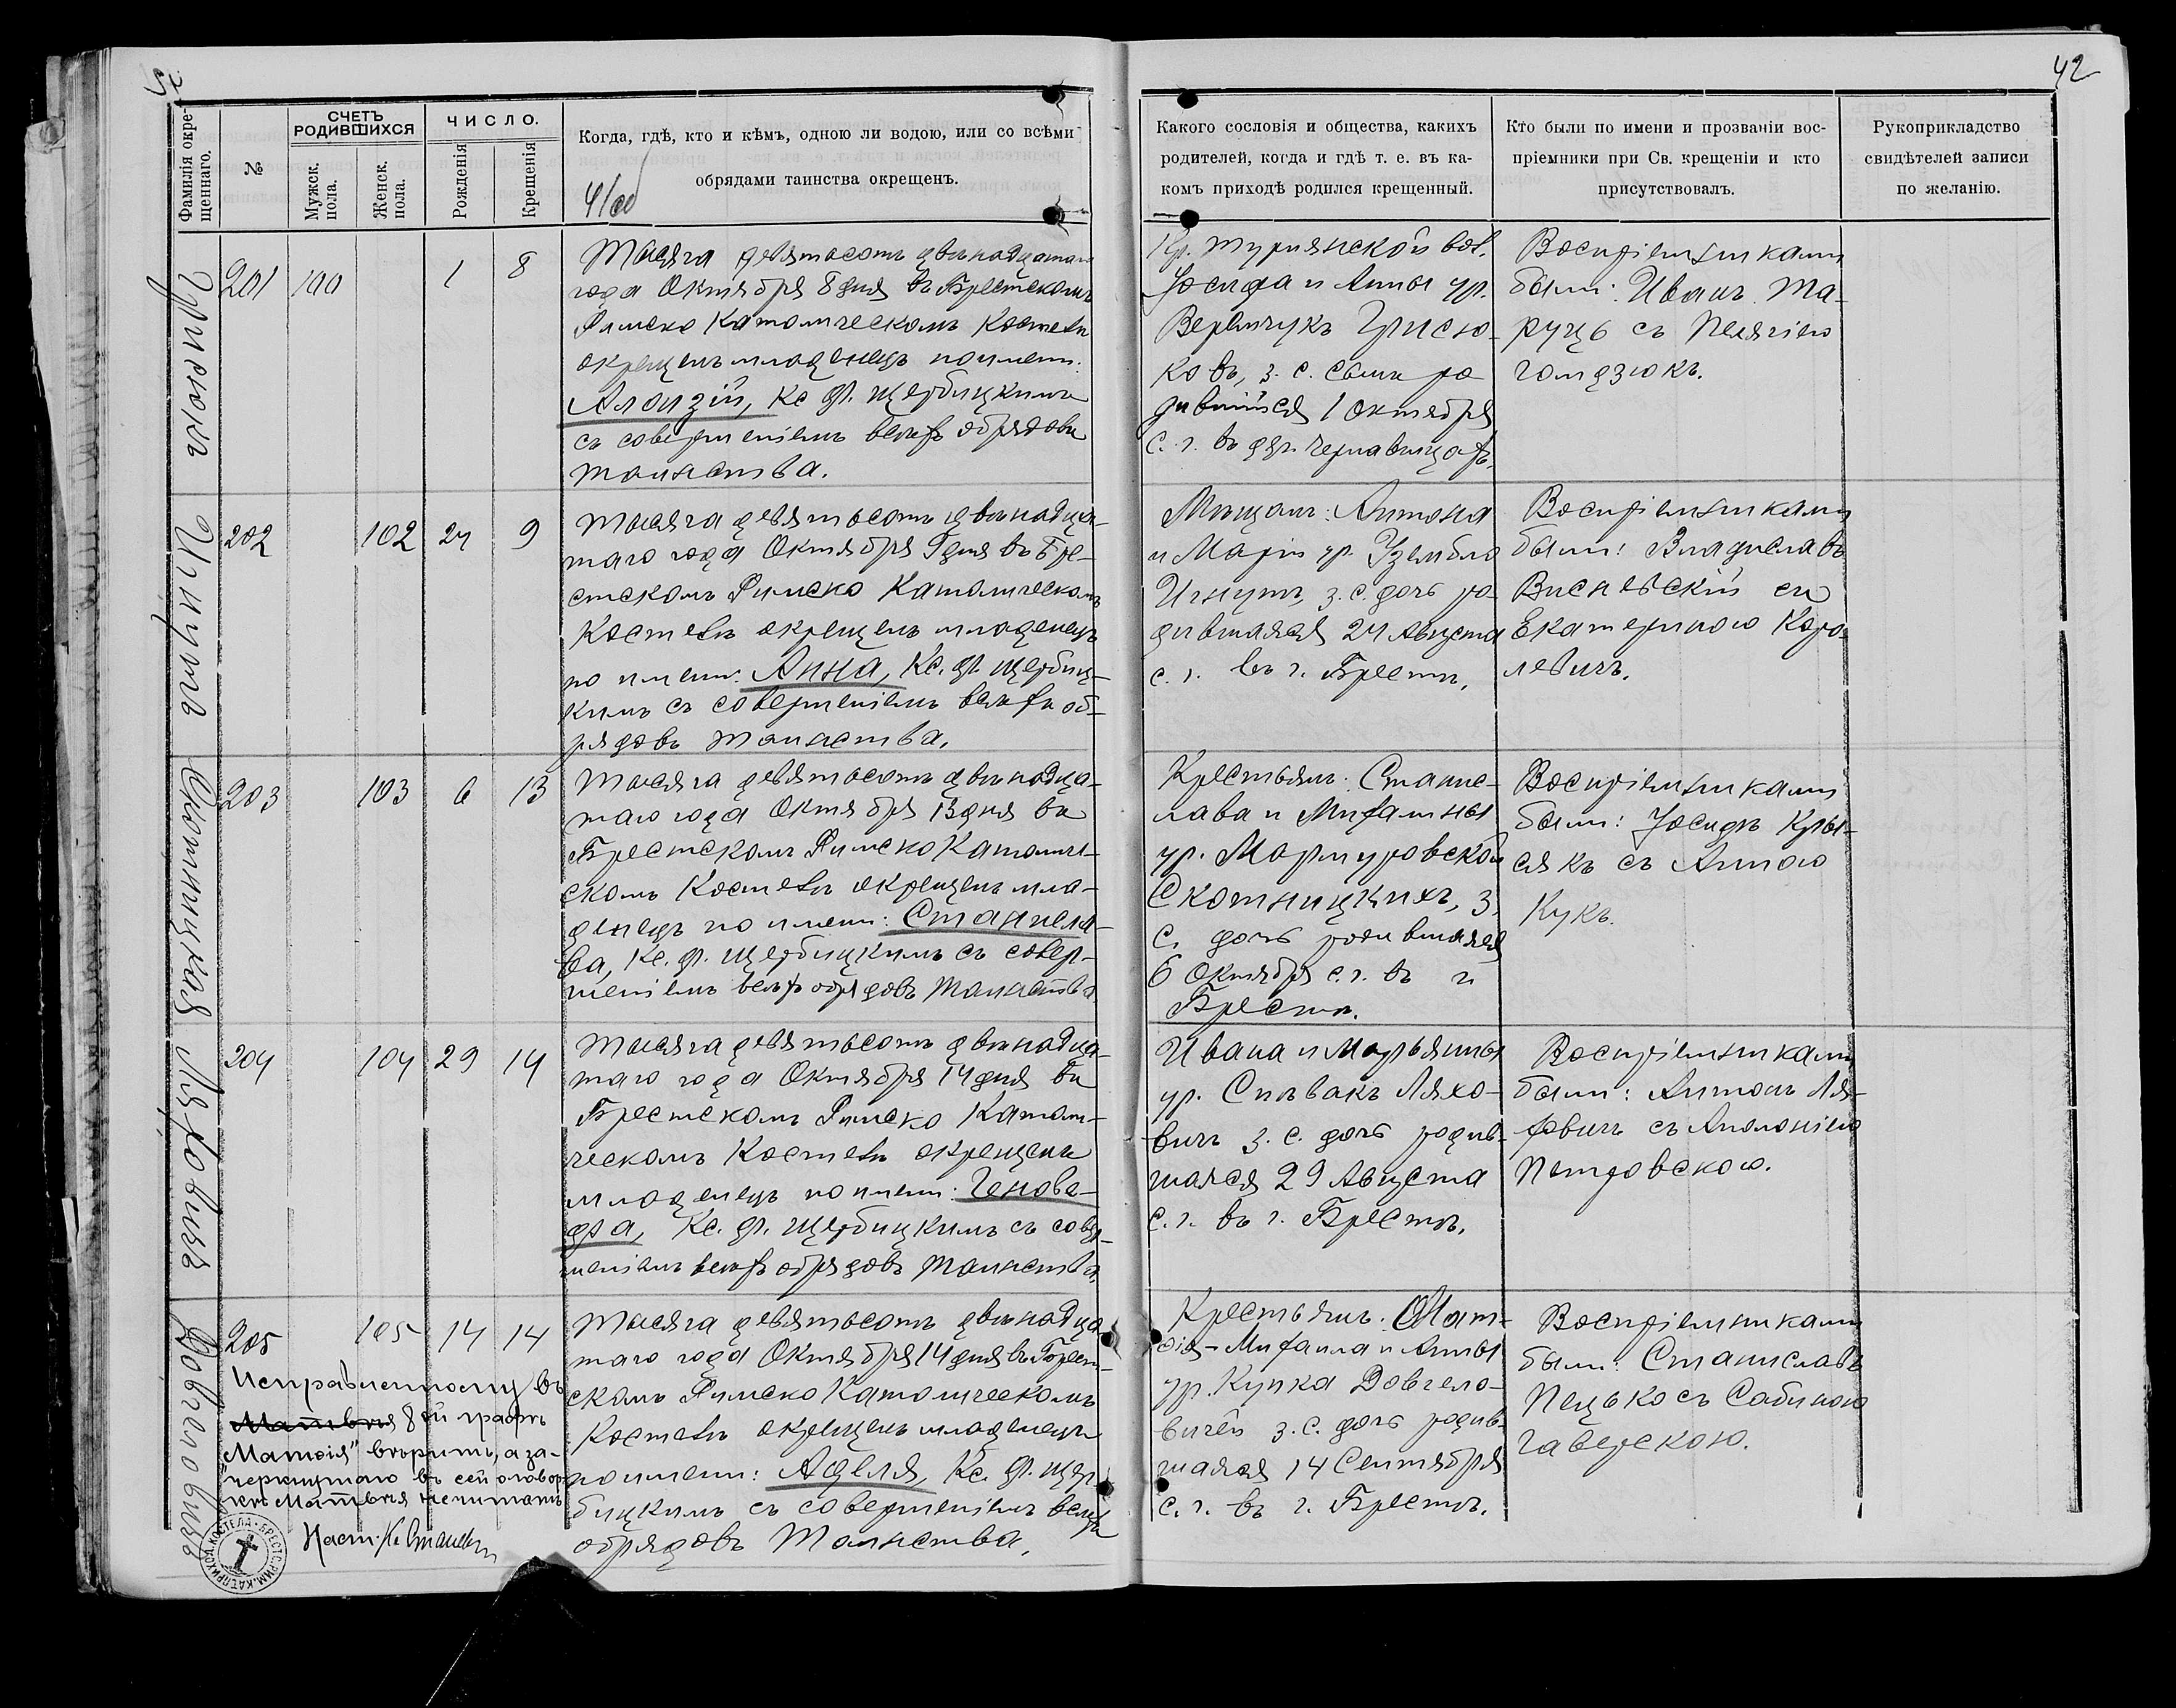 42
Фамилія окре-
щеннаго.
№
СЧЕТЪ
РОДИВШИХСЯ
Мужск.
пола.
Женск.
пола.
ЧИСЛО.
Рожденія
Крещенія
Когда, гдѣ, кто и кѣмъ, одною ли водою, или со всѣми
обрядами таинства окрещенъ.
Какого сословія и общества, какихъ
родителей, когда и гдѣ т. е. въ ка-
комъ приходѣ родился крещенный.
Кто были по имени и прозваніи вос-
пріемники при Св. крещеніи и кто
присутствовалъ.
Рукоприкладство
свидѣтелей записи
по желанію.
Грисюкъ
201 100 1 8
Тысяча девятьсотъ двѣнадцатаго
года Октября 8 дня въ Брестскомъ
Римско Католическомъ Костелѣ
окрещенъ младенецъ по имени:
Алоизій, Кс. Ф. Щербицкимъ
съ совершеніемъ всѣхъ обрядовъ
таинства.
Кр. Турнянской вол.
Іосифа и Анны ур.
Веремчукъ Грисю-
ковъ, з. с. сынъ ро
дившійся 1 Октября
с. г. въ дер. Чернавицахъ.
Воспріемниками
были: Иванъ Ма-
руць съ Пелягіею
Гомдзюкъ.
Игнутъ
202 102 24 9
Тысяча девятьсотъ двѣнадца-
таго года Октября 9 дня въ Бре-
стскомъ Римско Католическомъ
Костелѣ окрещенъ младенецъ
по имени: Анна, Кс. Ф. Щербиц-
кимъ съ совершеніемъ всѣхъ об-
рядовъ таинства.
Мѣщанъ: Антона
и Маріи ур. Узембло
Игнутъ, з. с. дочь ро-
дившаяся 24 Августа
с. г. въ г. Брестѣ.
Воспріемниками
были: Владиславъ
Висневскій съ
Екатериною Коро-
левичъ.
Скотницкая
203 103 6 13
Тысяча девятьсотъ двѣнадца-
таго года Октября 13 дня въ
Брестскомъ Римско Католиче-
скомъ Костелѣ окрещенъ мла-
денецъ по имени: Станисла-
ва, Кс. Ф. Щербицкимъ съ совер-
шеніемъ всѣхъ обрядовъ таинства.
Крестьянъ: Станис-
лава и Михалины
ур. Мармуровской
Скотницкихъ, з.
с. дочь родившаяся
6 Октября с. г. въ г.
Брестѣ.
Воспріемниками
были: Іосифъ Кры-
сякъ съ Анною
Кукъ.
Ляховичъ
204 104 29 14
Тысяча девятьсотъ двѣнадца-
таго года Октября 14 дня въ
Брестскомъ Римско Католи-
ческомъ Костелѣ окрещенъ
младенецъ по имени: Генове-
фа, Кс. Ф. Щербицкимъ съ совер-
шеніемъ всѣхъ обрядовъ таинства.
Ивана и Марьянны
ур. Спѣвакъ Ляхо-
вичъ з. с. дочь родив-
шаяся 29 Августа
с. г. въ г. Брестѣ.
Воспріемниками
были: Антонъ Ля-
ховичъ съ Аполоніею
Петровскою.
Довгеловичъ
205 105 14 14
Исправленному въ
Матвѣя 8ой графѣ
"Матѳія" вѣрить, а за-
черкнутаго въ сей оговор-
кѣ Матвѣя не читать
Тысяча девятьсотъ двѣнадца
таго года Октября 14 дня въ Брест-
скомъ Римско Католическомъ
Костелѣ окрещенъ младенецъ
по имени: Аделя, Кс. Ф. Щер-
бицкимъ съ совершеніемъ всѣхъ
обрядовъ таинства.
Крестьянъ: Мат-
ѳія-Михаила и Анны
ур. Купка Довгело-
вичей з. с. дочь родив-
шаяся 14 Сентября
с. г. въ г. Брестѣ.
Воспріемниками
были: Станиславъ
Пецько съ Сабиною
Гаверскою.
БРЕСТС. РИМ. КАТ. ПРИХОД. КОСТЕЛА